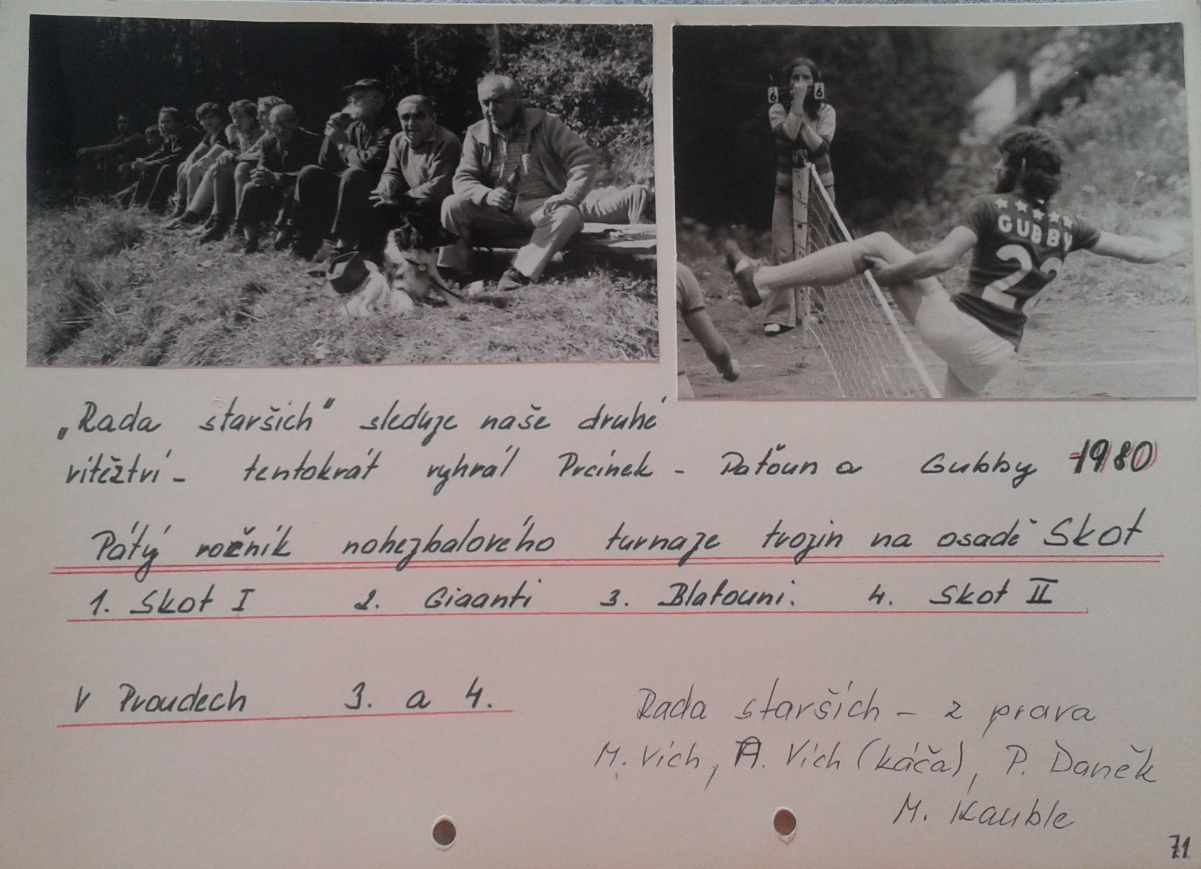 6 6
GUBBY
22
„Rada starších" sleduje naše druhé
vítěztví - tentokrát vyhrál Prcínek - Paťoun a Gubby 1980
Pátý ročník nohezbalového turnaje trojin na osadě Skot
1. Skot I 2. Giganti 3. Blatouni. 4. Skot II
V Proudech 3. a 4.
Rada starších - z prava
M. Vích, A. Vích (káča), P. Daněk
M. Kauble
71